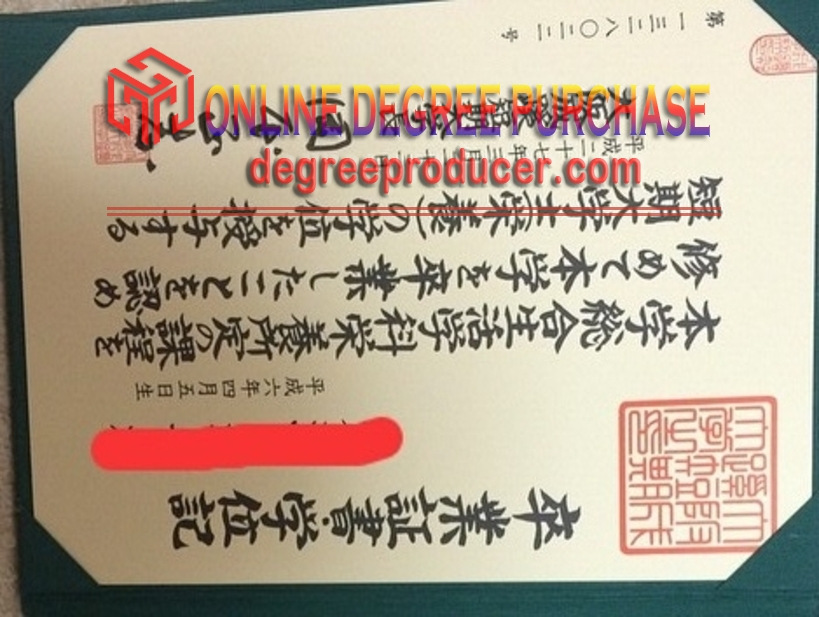 卒業証書・学位記
平成六年四月五日生
本学総合生活学科栄養所定の課程を
修めて本学を卒業したことを認め
短期大学士(栄養)の学位を授与する
平成二十七年三月二十
短期大学長
第一三二八〇二二号
ONLINE DEGREE PURCHASE
degreeproducer.com